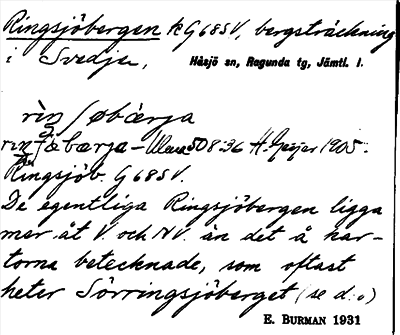 Ringsjöbergen k G 68 SV, bergsträckning
i Svedje, Håsjö sn, Ragunda tg, Jämtl. l.
rìŋʃøbæ̀rja
508:36 H. Geijer 1905.
Ringsjöb. G 68 SV.
De egentliga Ringsjöbergen ligga
mer åt V. och NV. än det å kar-
torna betecknade, som oftast
heter Sörringsjöberget (se d. o)
E. BURMAN 1931